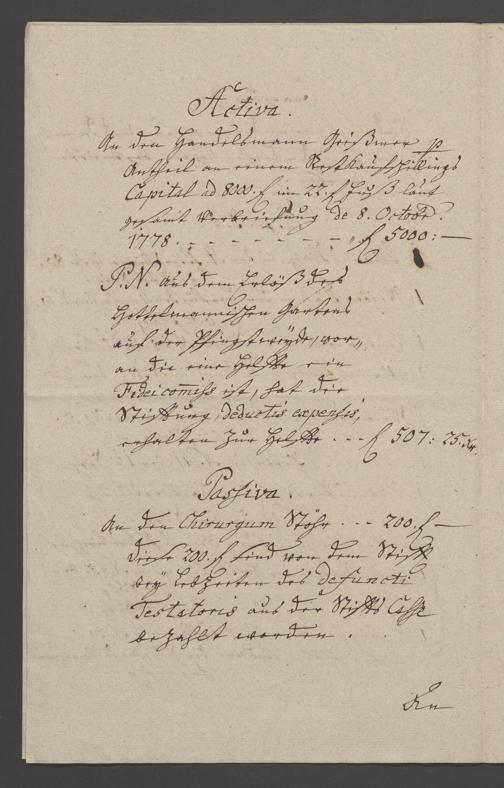 Activa.
An den Handelsmann Geißmer p
Antheil an einem Restkaufschillings
Capital ad 8000 f im 22 f Fuß laut
gesamt Verbriefung de 8. Octobr.
1778. - - - - - - - - f 5000: —
P.N. aus dem Erlöß des
Hottelmannischen Gartens
auf der Pfingstweyde, wor„
an die eine Helfte ein
Fidei comiss ist, hat die
Stifftung, deductis expensis,
erhalten zur Helfte - - - f 507: 25. Xr.
Passiva.
An den Chirurgum Stöhr - - - 200. f —
diese 200. f sind von dem Stifft
bey Lebzeiten des defuncti
Testatoris aus der Stiffts Casse
bezahlt worden.
An